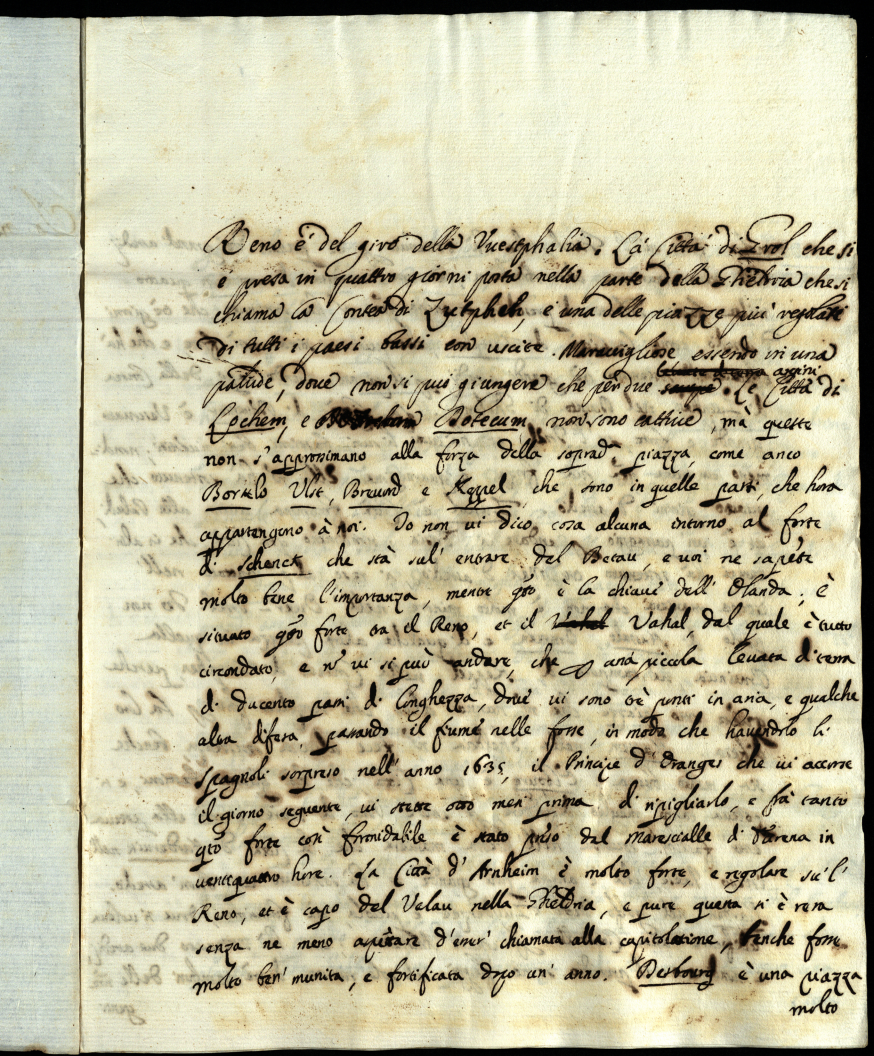 Reno è del giro della Vuestphalia. La Città di Grol che si
è presa in quattro giorni posta nella parte della Gheldria che si
chiama la Contea di Zutphen, è una delle piazze più regolati
di tutti i paesi bassi con uscite. Maravigliose, essendo in una
palude, dove non si può giungere che per due argini. Le Città di
Lochem, e Botecum non sono cattive, mà queste
non s'approssimano alla forza della soprad.ª piazza, come anco
Borkelo Ulst, Brevord e Keppel, che sono in quelle parti, che hora
appartengono à noi. Io non vi dico cosa alcuna intorno al forte
di Schenck che stà sul' entrare del Betau, e voi ne sapete
molto bene l'importanza, mentre q̃sto è la chiave dell' Olanda; è
situato q̃sto forte tra il Reno, et il Vahal, dal quale è tutto
circondato, e nō vi si può andare, che una piccola levata di terra
di ducento passi di longhezza, dove vi sono trè ponti in aria, e qualche
altra difesa, passando il fiume nelle fosse, in modo che havendolo li
Spagnoli sorpreso nell' anno 1635, il Principe d' Oranges che vi accorse
il giorno seguente, vi stette otto mesi prima di ripigliarlo, e frà tanto
q̃sto forte così formidabile è stato preso dal Marescialle di Turena in
ventiquattro hore. La Città d' Arnheim è molto forte, e regolare su'l'
Reno, et è capo del Velau nella Gheldria, e pure questa si è resa
senza ne meno aspettare d'esser' chiamata alla capitolatione, benche fosse
molto ben' munita, e fortificata dopo un' anno. Desbourg è una piazza
molto